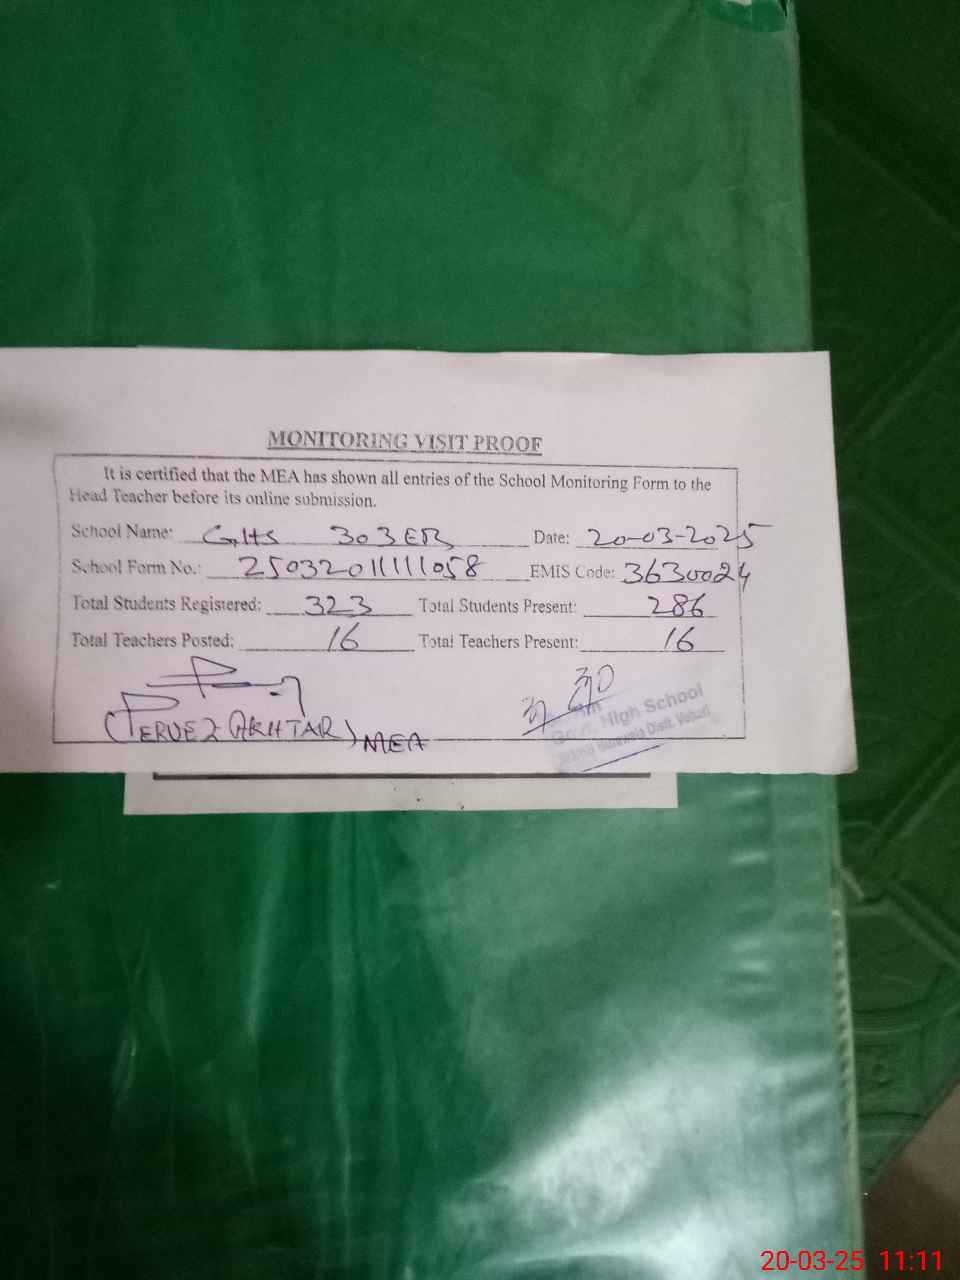 MONITORING VISIT PROOF
It is certified that the MEA has shown all entries of the School Monitoring Form to the
Head Teacher before its online submission.
School Name: GHS 303EB Date: 20-03-2025
School Form No.: 250320111111058 EMIS Code: 36300024
Total Students Registered: 323 Total Students Present: 286
Total Teachers Posted: 16 Total Teachers Present: 16
(PERVEZ AKHTAR) MEA
High School
Distt. Vehari
20-03-25 11:11